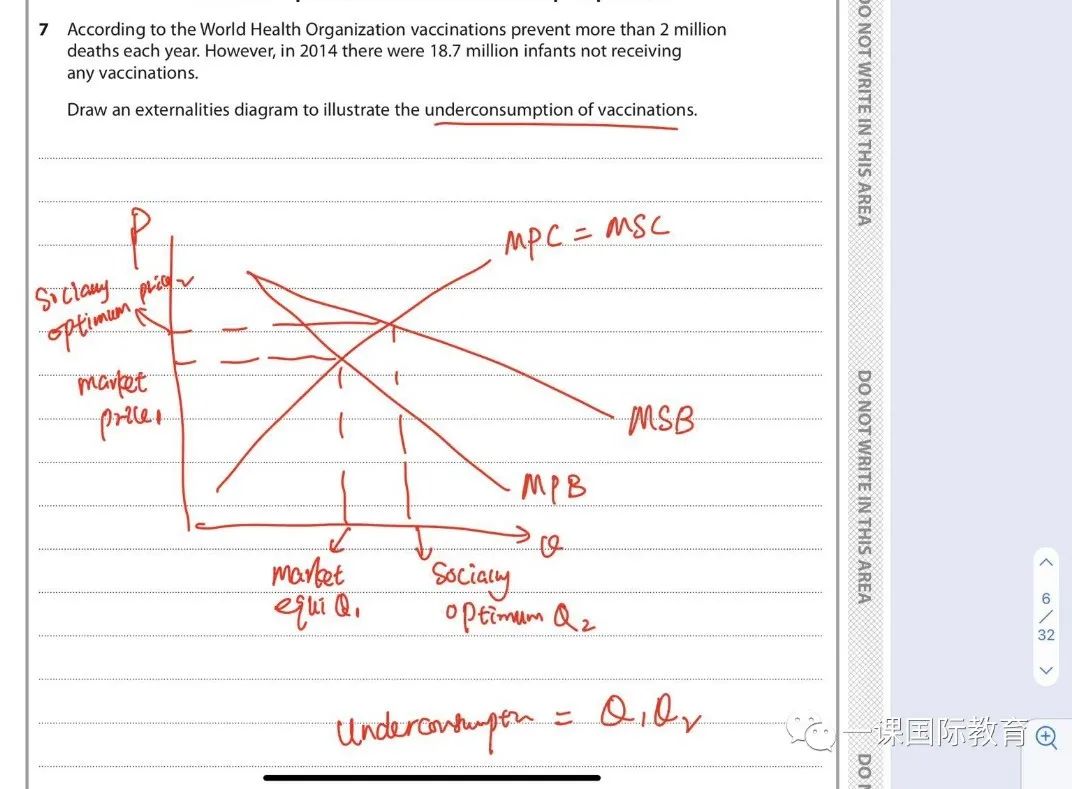 7 According to the World Health Organization vaccinations prevent more than 2 million
deaths each year. However, in 2014 there were 18.7 million infants not receiving
any vaccinations.
Draw an externalities diagram to illustrate the underconsumption of vaccinations.
P
MPC = MSC
Socially price2
optimum
market
price1
MSB
MPB
Q
market
equi Q1
Socially
optimum Q2
Underconsumption = Q1Q2
DO NOT WRITE IN THIS AREA
DO NOT WRITE IN THIS AREA
DO
6
/
32
一课国际教育